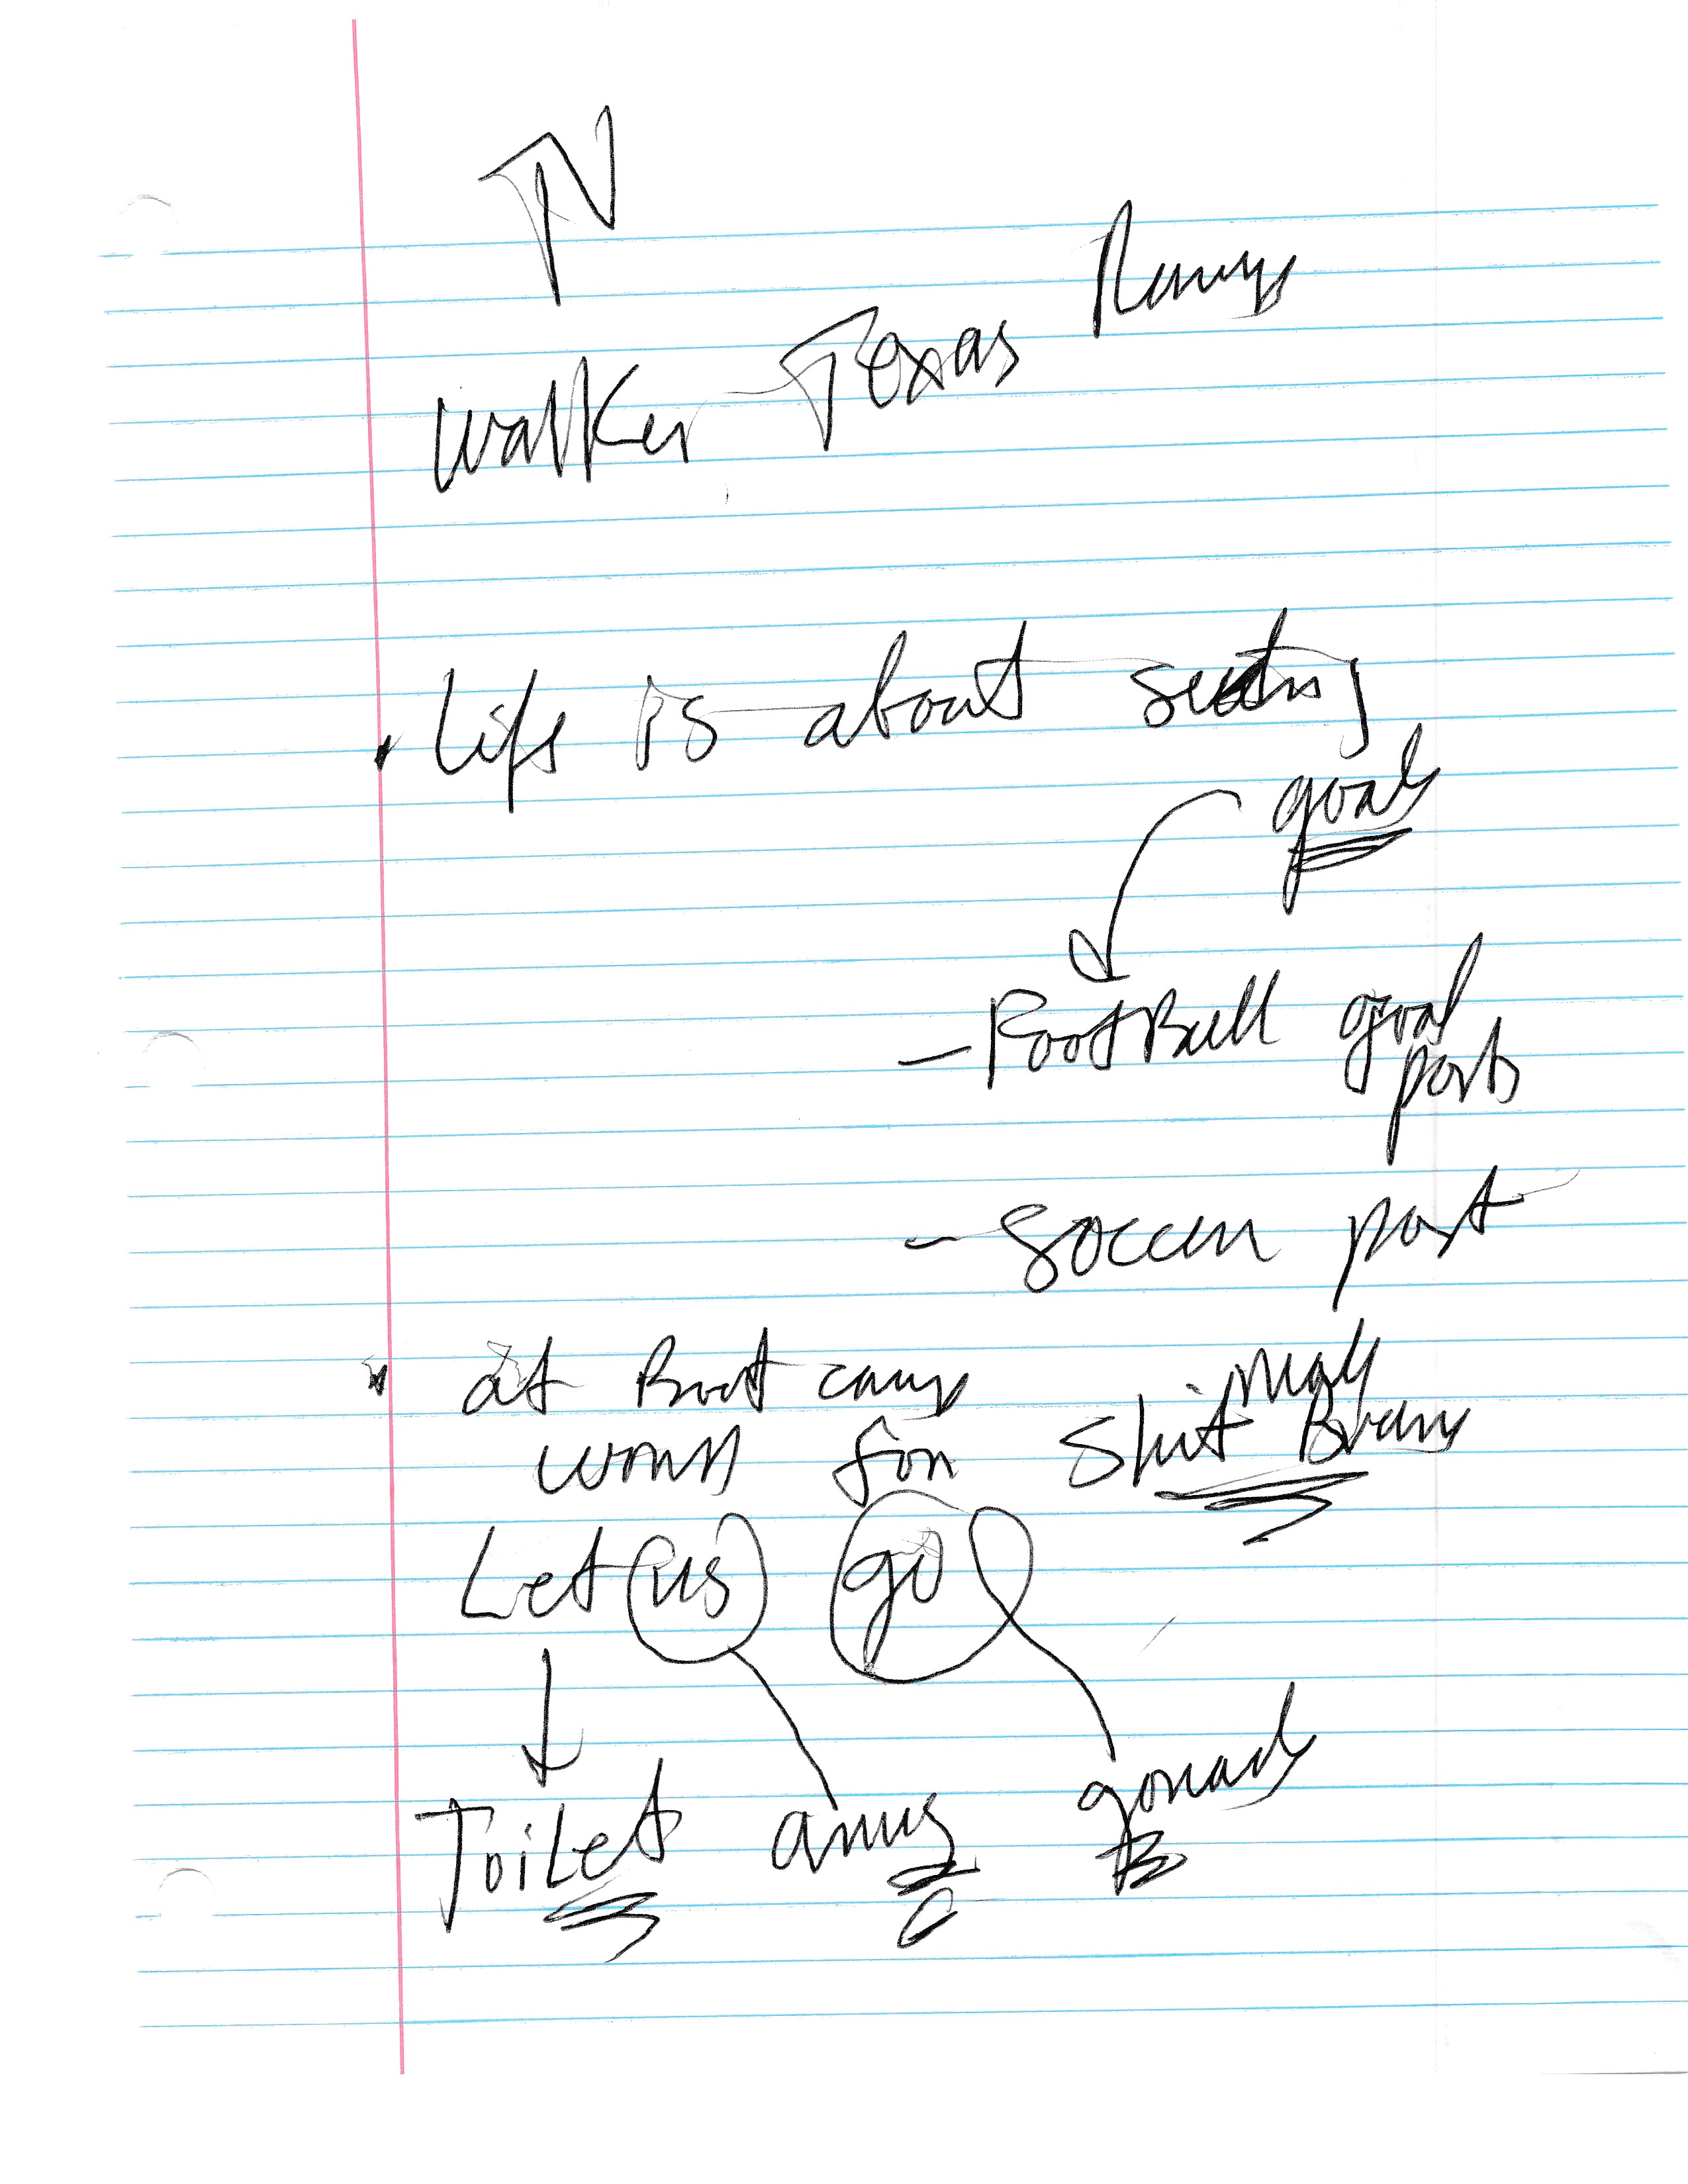 TV
Walker Texas Ranger
Life is about setting
goals
- FootBall goal
posts
- Soccer post
at Boot camp
words for Shit
Let us go
Toilet anus gonads